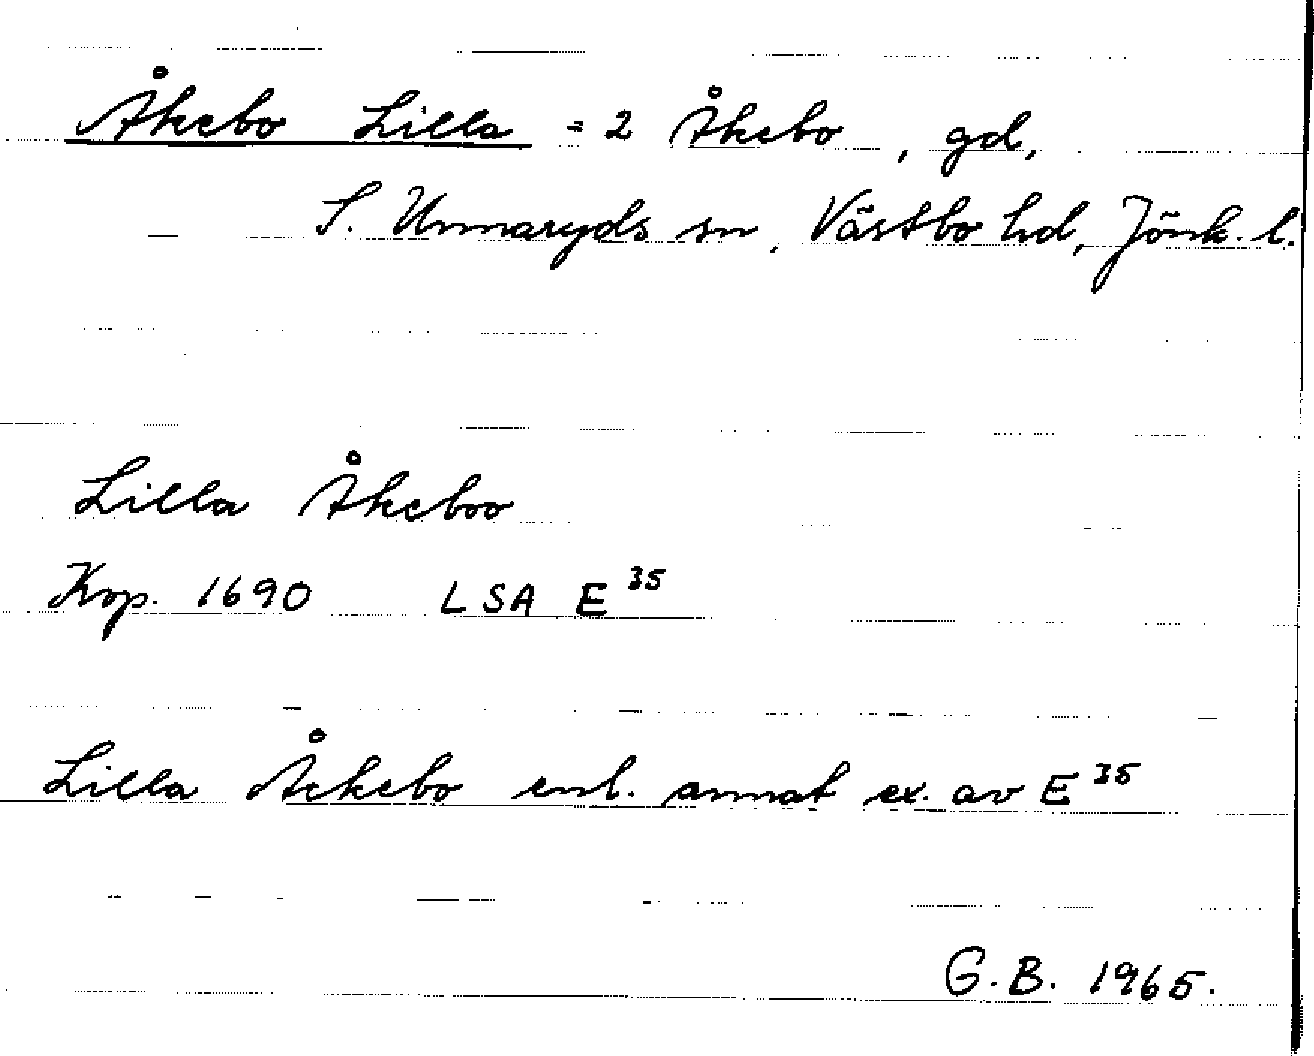 Åkebo Lilla = 2 Åkebo, gd,
S. Unnaryds sn, Västbo hd, Jönk. l.
Lilla Åkeboo
Kop. 1690 LSA E 35
Lilla Åckebo enl. annat ex. av E 35
G.B. 1965.